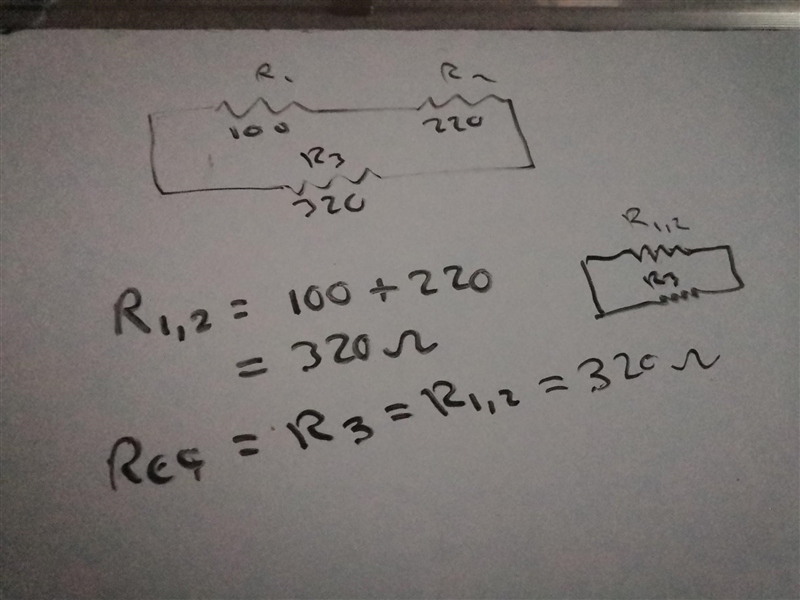 R₁ R₂
100 220
R3
320
R1,2
R3
R1,2 = 100 + 220
= 320 Ω
Req = R3 = R1,2 = 320 Ω